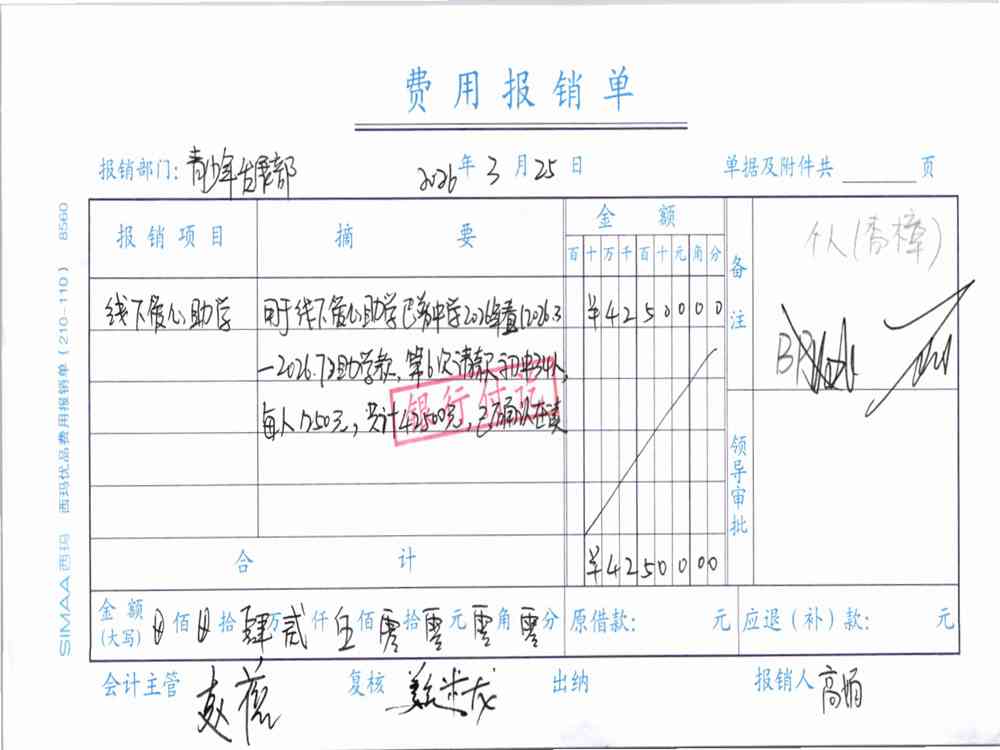 费用报销单
报销部门: 青少年发展部 2026年3月25日 单据及附件共 页
报销项目 摘要 金额 备注
百十万千百十元角分
个人(香樟)
线下爱心助学 用于线下爱心助学 中学2026年 (2026.3 ¥4250000
-2026.7)助学款,第6次请款,初中34人,
每人1250元,共计42500元,已确认在读
银行付讫
领导审批
合计 ¥4250000
金额(大写) 佰 拾肆万贰仟伍佰零拾零元零角零分 原借款: 元 应退(补)款: 元
会计主管 复核 出纳 报销人 高娟
SIMAA 西玛 西玛优品费用报销单(210-110) 8560